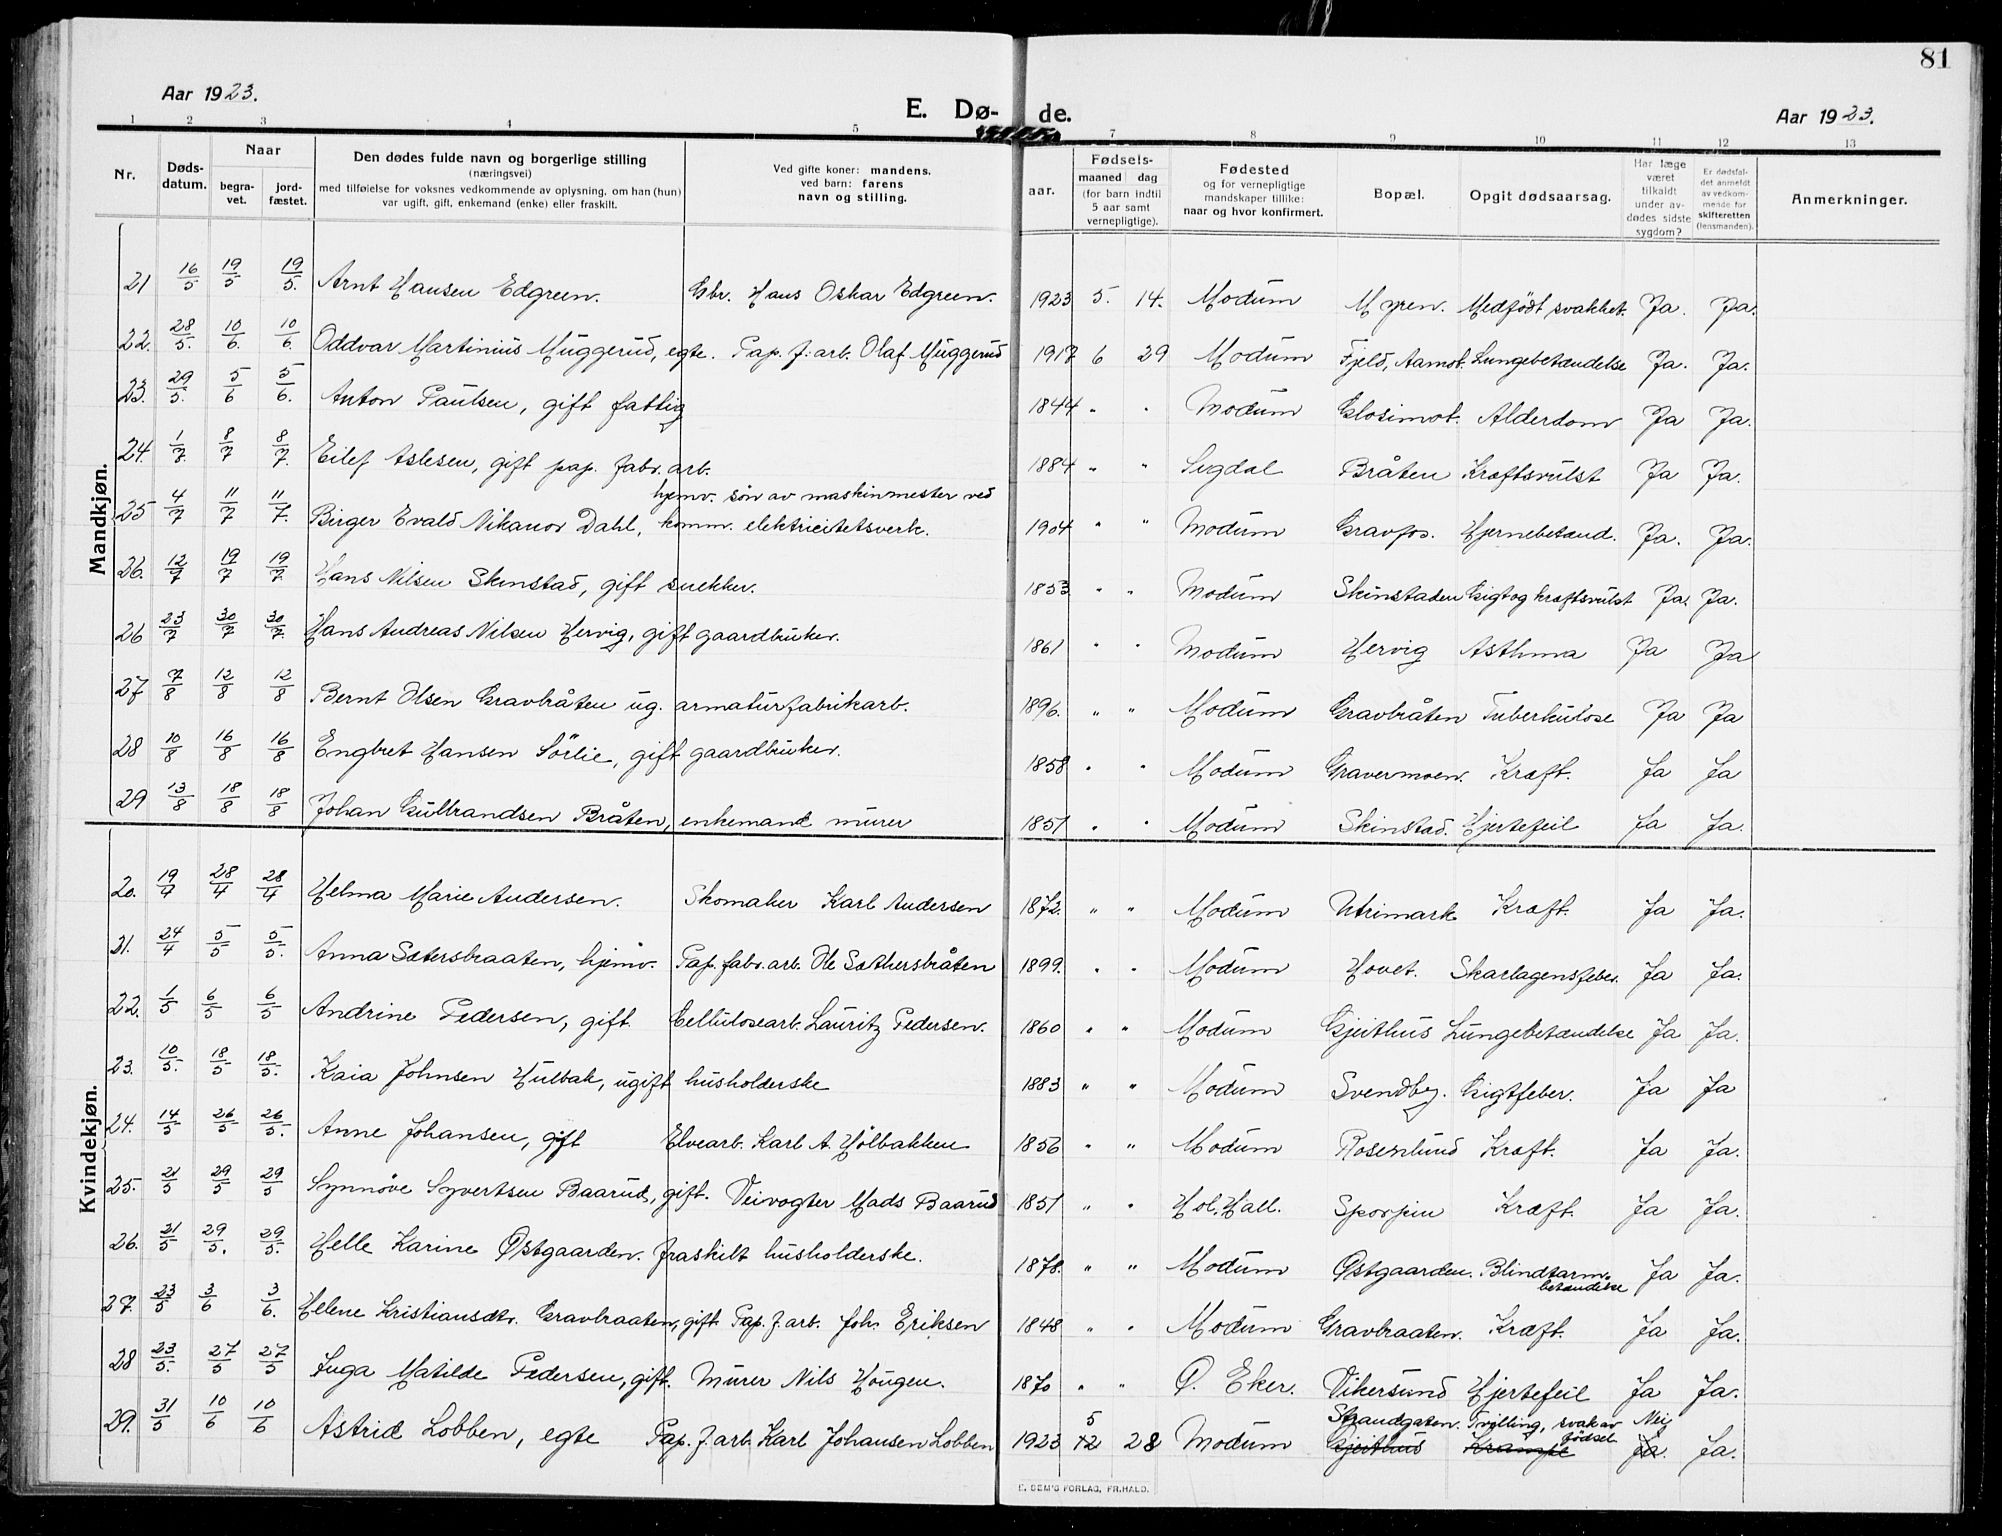 81
Aar 1923.
E. Dø- de.
Aar 1923.
1 2 3 4 5 7 8 9 10 11 12 13
Nr.
Døds-
datum.
Naar
begra-
vet.
jord-
fæstet.
Den dødes fulde navn og borgerlige stilling
(næringsvei)
med tilføielse for voksnes vedkommende av oplysning, om han (hun)
var ugift, gift, enkemand (enke) eller fraskilt.
Ved gifte koner: mandens.
ved barn: farens
navn og stilling.
aar.
Fødsels-
maaned dag
(for barn indtil
5 aar samt
vernepligtige).
Fødested
og for vernepligtige
mandskaper tillike:
naar og hvor konfirmert.
Bopæl.
Opgit dødsaarsag.
Har læge
været
tilkaldt
under av-
dødes sidste
sygdom?
Er dødsfal-
det anmeldt
av vedkom-
mende for
skifteretten
(lensmanden).
Anmerkninger.
Mandkjøn.
21 16/5 19/5 19/5. Arnt Hansen Edgreen. Gbr. Hans Oskar Edgreen. 1923 5. 14. Modum Myren. Medfödt svakhet. Ja. Ja.
22. 28/5. 10/6. 10/6. Oddvar Martinius Muggerud, egte. Pap. f. arb. Olaf Muggerud 1917 6 29 Modum Fjeld, Aamot. Lungebetændelse Ja. Ja.
23. 29/5. 5/6 5/6. Anton Paulsen, gift fattig 1844 " " Modum Glosimot. Alderdom Ja Ja.
24. 1/7. 8/7 8/7. Eilef Aslesen, gift pap. fabr. arb. 1884 " " Sigdal Bråten Kræftsvulst Ja Ja.
hjemv. sön av maskinmester ved
25 4/7 11/7 11/7. Birger Evald Nikanor Dahl, komm. elektricitetsverk. 1904 " " Modum Gravfos. Hjernebetænd. Ja. Ja.
26. 12/7 19/7 19/7. Hans Nilsen Skinstad, gift snekker. 1853 " " Modum Skinstaden Gigt og kræftsvulst Ja. Ja.
26 23/7 30/7 30/7. Hans Andreas Nilsen Hervig, gift gaardbruker. 1861 " " Modum Hervig Asthma Ja Ja
27 7/8 12/8 12/8 Bernt Olsen Gravbråten ug. armaturfabrikarb. 1896. " " Modum Gravbråten Tuberkulose Ja Ja
28 10/8 16/8 16/8 Engbret Hansen Sörlie, gift gaardbruker. 1858 " " Modum Gravermoen. Kræft. Ja Ja
29 13/8 18/8 18/8 Johan Gulbrandsen Bråten, enkemand murer 1851 " " Modum Skinstad. Hjertefeil Ja Ja.
Kvindekjøn.
20. 19/4 28/4 28/4 Helma Marie Andersen. Skomaker Karl Andersen 1872. " " Modum Utrimark Kræft. Ja Ja.
21. 24/4 5/5 5/5. Anna Sætersbraaten, hjemv. Pap. fabr. arb. Ole Sæthersbråten 1899. " " Modum Hovet. Skarlagensfeber. Ja Ja.
22. 1/5 6/5 6/5 Andrine Pedersen, gift Cellulosearb. Lauritz Pedersen. 1860 " " Modum Gjeithus Lungebetændelse Ja Ja.
23. 10/5. 18/5 18/5. Kaia Johnsen Hulbak, ugift husholderske 1883 " " Modum Svendby. Gigtfeber. Ja Ja
24. 14/5 26/5 26/5. Anne Johansen, gift Elvearb. Karl A. Hølbakken 1856 " " Modum Rosenlund Kræft. Ja Ja.
25. 21/5 29/5 29/5 Synnöve Syvertsen Baarud, gift. Veivogter Mads Baarud 1851 " " Hol, Hall. Sporpin Kræft. Ja Ja.
26. 21/5 29/5. 29/5. Helle Karine Østgaarden. fraskilt husholderske. 1878. " " Modum Østgaarden. Blindtarm- Ja Ja.
betændelse
27. 23/5 3/6 3/6. Helene Kristiansdtr. Gravbraaten, gift Pap. f. arb. Joh. Eriksen 1848 " " Modum Gravbraaten. Kræft. Ja Ja.
28 23/5. 27/5 27/5 Inga Matilde Pedersen, gift. Murer Nils Hougen. 1870 " " Ø. Eker. Vikersund Hjertefeil Ja Ja.
5 Strandgaten. Tvilling, svak av Nei
födsel
29. 31/5 10/6 10/6 Astrid Lobben, egte Pap. f. arb. Karl Johansen Lobben 1923 12 28 Modum Gjeithus Krampe Ja. Ja.
E. SEM'S FORLAG, FR.HALD.